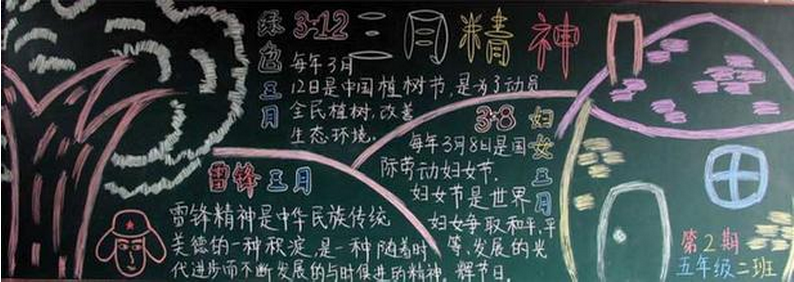 三月精神
绿色三月
3·12
每年3月
12日是中国植树节,是为了动员
全民植树,改善
生态环境。
3·8
妇女三月
每年3月8日是国
际劳动妇女节。
妇女节是世界
妇女争取和平,平
等、发展的光
辉节日。
雷锋三月
雷锋精神是中华民族传统
美德的一种积淀,是一种随着时
代进步而不断发展的与时俱进的精神。
第2期
五年级二班